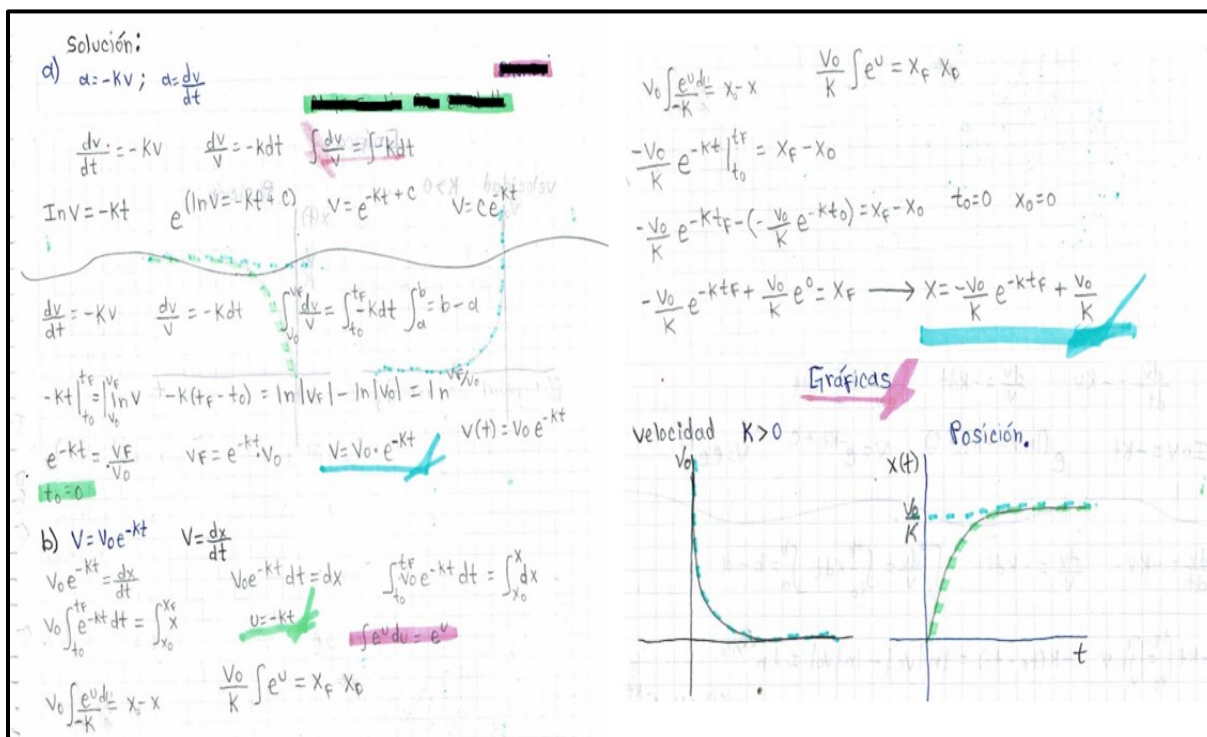 Solución:
a) a=-Kv ; a=dv/dt
dv/dt=-Kv dv/v=-kdt ∫dv/v=∫-kdt
InV=-Kt e^(lnV=-Kt+C) V=e^-Kt+C V=Ce^-Kt
dv/dt=-Kv dv/v=-Kdt ∫_V0^VF dv/v=∫_t0^tF-Kdt ∫_a^b=b-a
-Kt|_t0^tF=|_V0^VF ln V -K(tF-t0)=ln|VF|-ln|V0|=ln^VF/V0
e^-Kt=VF/V0 VF=e^-Kt·V0 V=V0·e^-Kt V(t)=V0e^-Kt
t0=0
b) V=V0e^-Kt V=dx/dt
V0e^-Kt=dx/dt V0e^-Kt dt=dx ∫_t0^tF V0e^-Kt dt=∫_x0^x dx
V0∫_t0^tF e^-Kt dt=∫_x0^xF x u=-Kt ∫e^u du=e^u
V0∫e^u du/-K=x0-x V0/K∫e^u=XF-X0
V0∫e^u du/-K=x0-x V0/K∫e^u=XF-X0
-V0/K e^-Kt|_t0^tF=XF-X0
-V0/K e^-KtF-(-V0/K e^-Kt0)=XF-X0 t0=0 X0=0
-V0/K e^-KtF+V0/K e^0=XF → X=-V0/K e^-KtF+V0/K
Gráficas
Velocidad K>0 Posición.
V0 X(t)
V0/K
t